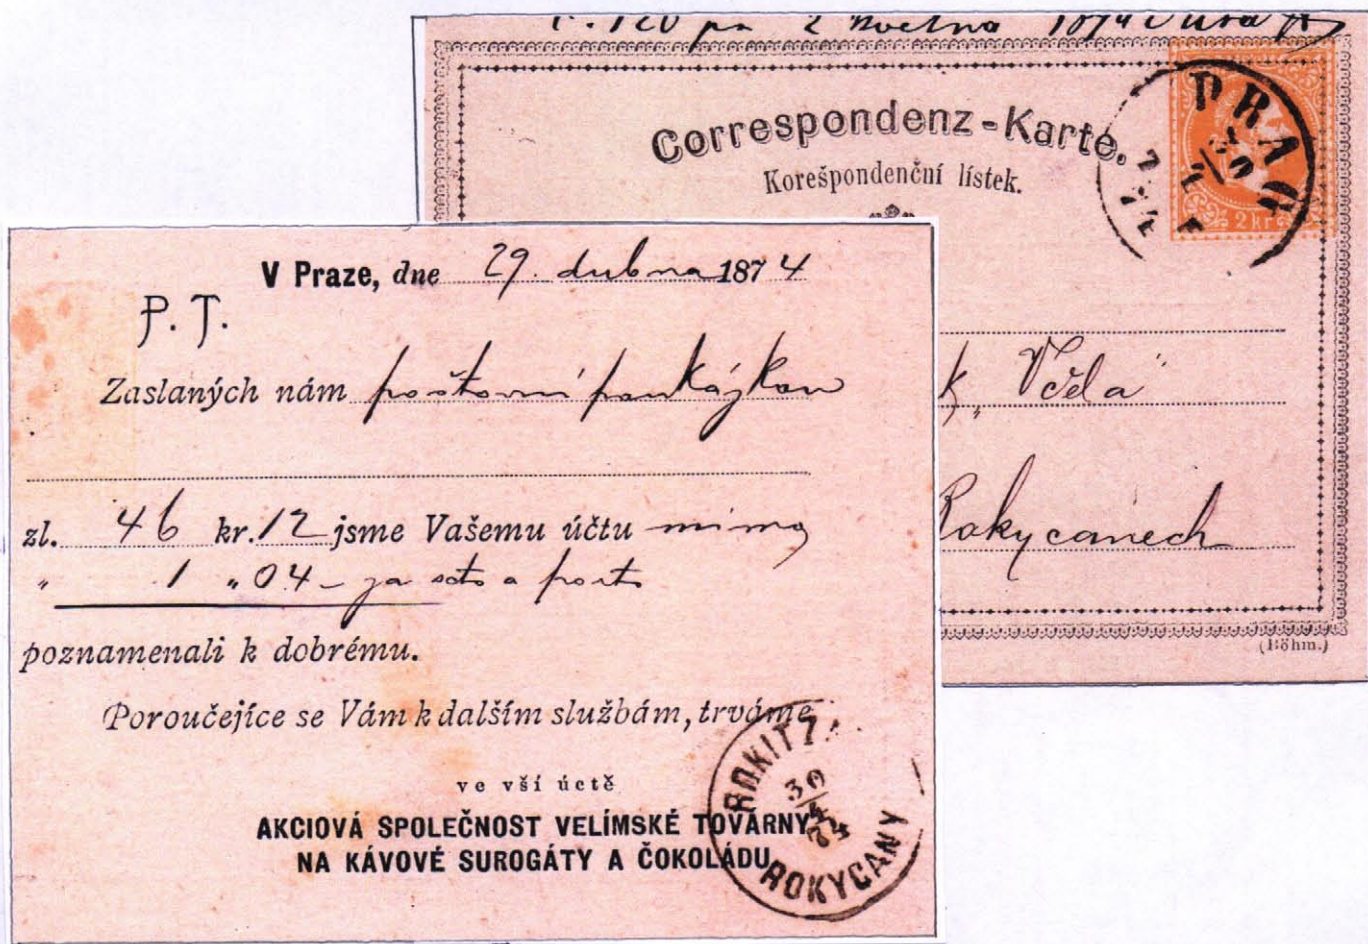 č. 120 pr 2 května 1874
Correspondenz-Karte.
Korešpondenční lístek.
PRAG
30
4
2 kr
k „Včela“
Rokycanech
(Böhm.)
V Praze, dne 29. dubna 1874
P. T.
Zaslaných nám poštovní poukázkou
zl. 46 kr. 12 jsme Vašemu účtu mimo
„ 1 „ 04 – za a porto
poznamenali k dobrému.
Poroučejíce se Vám k dalším službám, trváme
ve vší úctě
AKCIOVÁ SPOLEČNOST VELÍMSKÉ TOVÁRNY
NA KÁVOVÉ SUROGÁTY A ČOKOLÁDU
ROKITZ
30
4
74
ROKYCANY